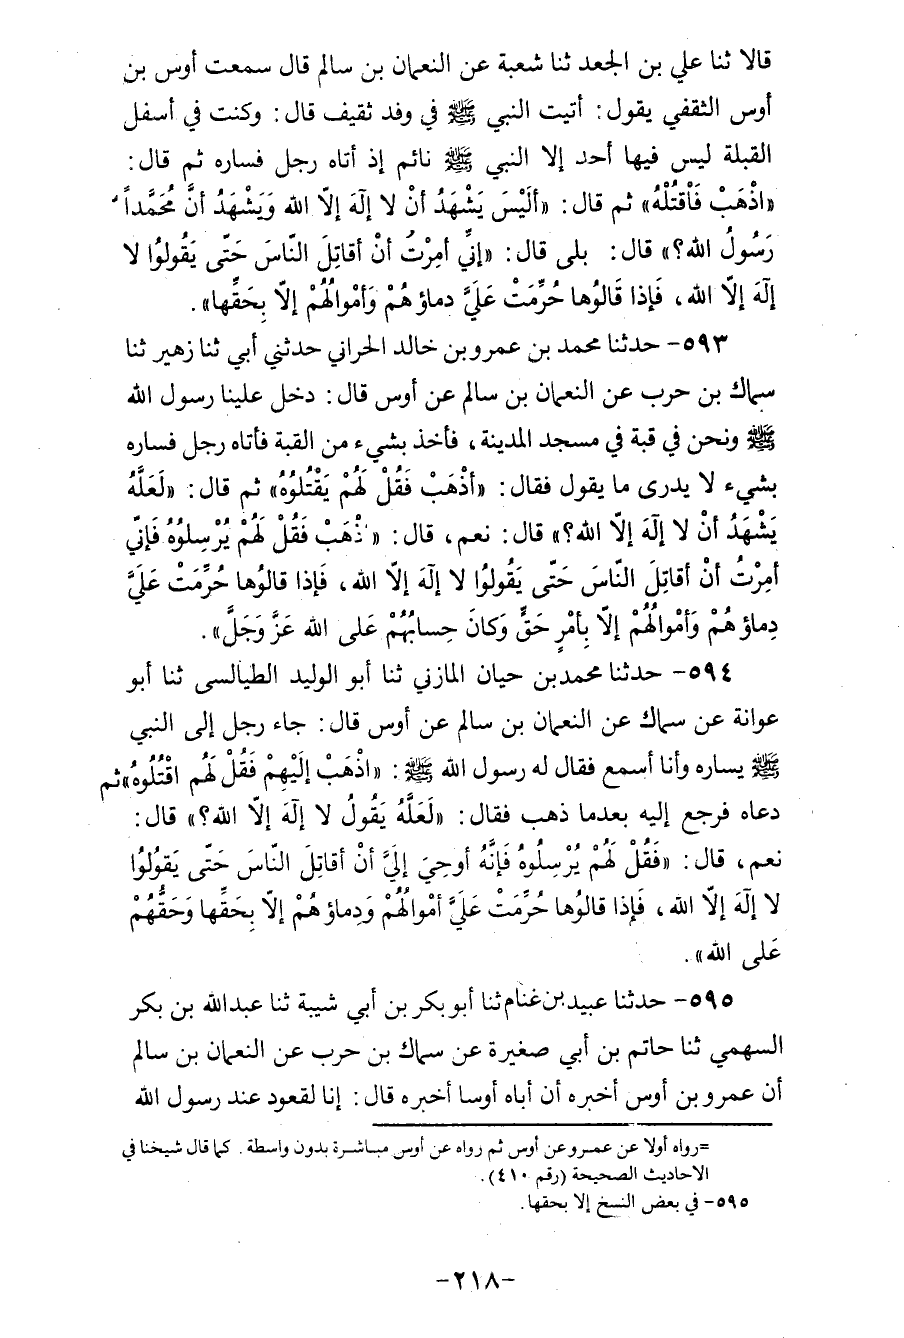 قالا ثنا علي بن الجعد ثنا شعبة عن النعمان بن سالم قال سمعت أوس بن
أوس الثقفي يقول : أتيت النبي ﷺ في وفد ثقيف قال : وكنت في أسفل
القبلة ليس فيها أحد إلا النبي ﷺ نائم إذ أتاه رجل فساره ثم قال :
«اذْهَبْ فَاْقتُلْهُ» ثم قال : «أَلَيْسَ يَشْهَدُ أنْ لا إلَهَ إلاّ الله وَيَشْهَدُ أنَّ مُحَمَّداً
رَسُولُ الله؟» قال : بلى قال : «إنِّي أمِرْتُ أنْ أقاتِلَ النّاسَ حَتّى يَقُولُوُا لا
إلَهَ إلاّ الله ، فَإذا قَالُوُها حُرِّمَتْ عَلَيَّ دماؤهُمْ وَأمْوالُهُمْ إلاّ بِحَقِّها» .
٥٩٣- حدثنا محمد بن عمرو بن خالد الحراني حدثني أبي ثنا زهير ثنا
سماك بن حرب عن النعمان بن سالم عن أوس قال : دخل علينا رسول الله
ﷺ ونحن في قبة في مسجد المدينة ، فأخذ بشيء من القبة فأتاه رجل فساره
بشيء لا يدرى ما يقول فقال : «أذْهَبْ فَقُلْ لَهُمْ يَقْتُلُوُهُ» ثم قال : «لَعَلَّهُ
يَشْهَدُ أنْ لا إلَهَ إلاّ الله؟» قال : نعم ، قال : «ذْهَبْ فَقُلْ لَهُمْ يُرْسِلوُهُ فَإنّي
أمِرْتُ أنْ أقاتِلَ النّاسَ حَتّى يَقُولُوُا لا إلَهَ إلاّ الله ، فَإذا قالُوُها حُرِّمَتْ عَلَيَّ
دِماؤهُمْ وَأمْوالُهُمْ إلاّ بِأمْرٍ حَقٍّ وَكانَ حِسابُهُمْ عَلى الله عَزَّ وَجَلَّ» .
٥٩٤- حدثنا محمد بن حيان المازني ثنا أبو الوليد الطيالسى ثنا أبو
عوانة عن سماك عن النعمان بن سالم عن أوس قال : جاء رجل إلى النبي
ﷺ يساره وأنا أسمع فقال له رسول الله ﷺ : «اذْهَبْ إلَيْهِمْ فَقُلْ لَهُم اقْتُلُوهُ» ثم
دعاه فرجع إليه بعدما ذهب فقال : «لَعَلَّهُ يَقُولُ لا إلَهَ إلاّ الله؟» قال :
نعم ، قال : «فَقُلْ لَهُمْ يُرْسِلُوهُ فَإنَّهُ أوحِيَ إلَيَّ أنْ أقاتِلَ النّاسَ حَتّى يَقوُلُوُا
لا إلَهَ إلاّ الله ، فَإذا قالوُها حُرِّمَتْ عَلَيَّ أمْوالُهُمْ وَدِماؤهُمْ إلاّ بِحَقِّها وَحَقُّهُمْ
عَلى الله» .
٥٩٥- حدثنا عبيد بن غنام ثنا أبو بكر بن أبي شيبة ثنا عبدالله بن بكر
السهمي ثنا حاتم بن أبي صغيرة عن سماك بن حرب عن النعمان بن سالم
أن عمرو بن أوس أخبره أن أباه أوسا أخبره قال : إنا لقعود عند رسول الله
=رواه أولا عن عمرو عن أوس ثم رواه عن أوس مباشرة بدون واسطة . كما قال شيخنا في
الاحاديث الصحيحة (رقم ٤١٠) .
٥٩٥- في بعض النسخ إلا بحقها .
-٢١٨-